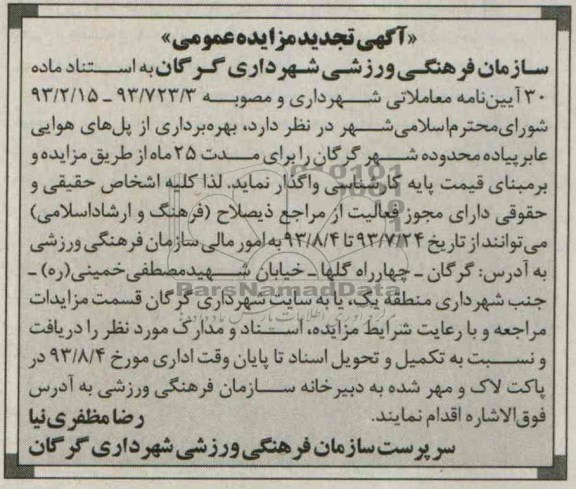 «آگهی تجدید مزایده عمومی»
سازمان فرهنگی ورزشی شهرداری گرگان به استناد ماده
۳۰ آیین‌نامه معاملاتی شهرداری و مصوبه ۹۳/۷۲۳/۳ ـ ۹۳/۲/۱۵
شورای محترم اسلامی شهر در نظر دارد، بهره‌برداری از پل‌های هوایی
عابر پیاده محدوده شهر گرگان را برای مدت ۲۵ ماه از طریق مزایده و
برمبنای قیمت پایه کارشناسی واگذار نماید. لذا کلیه اشخاص حقیقی و
حقوقی دارای مجوز فعالیت از مراجع ذیصلاح (فرهنگ و ارشاد اسلامی)
می‌توانند از تاریخ ۹۳/۷/۲۴ تا ۹۳/۸/۴ به امور مالی سازمان فرهنگی ورزشی
به آدرس: گرگان ـ چهارراه گلها ـ خیابان شهید مصطفی خمینی(ره) ـ
جنب شهرداری منطقه یک، یا به سایت شهرداری گرگان قسمت مزایدات
مراجعه و با رعایت شرایط مزایده، اسناد و مدارک مورد نظر را دریافت
و نسبت به تکمیل و تحویل اسناد تا پایان وقت اداری مورخ ۹۳/۸/۴ در
پاکت لاک و مهر شده به دبیرخانه سازمان فرهنگی ورزشی به آدرس
فوق‌الاشاره اقدام نمایند.
رضا مظفری نیا
سرپرست سازمان فرهنگی ورزشی شهرداری گرگان
ParsNamadData